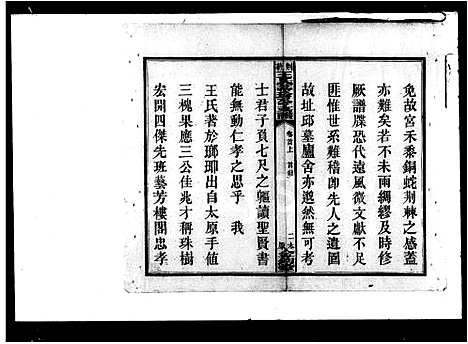 免故宮禾黍銅蛇荆棘之感蓋
亦難矣若不未雨綢繆及時修
厥譜牒恐代遠風微文獻不足
匪惟世系難稽卽先人之遺圖
故址邱墓廬舍亦邈然無可考
卷首上
二
士君子負七尺之軀讀聖賢書
能無動仁孝之思乎 我
王氏著於瑯琊出自太原手值
三槐果應三公佳兆才稱珠樹
宏開四傑先班藝芳樓閣忠孝